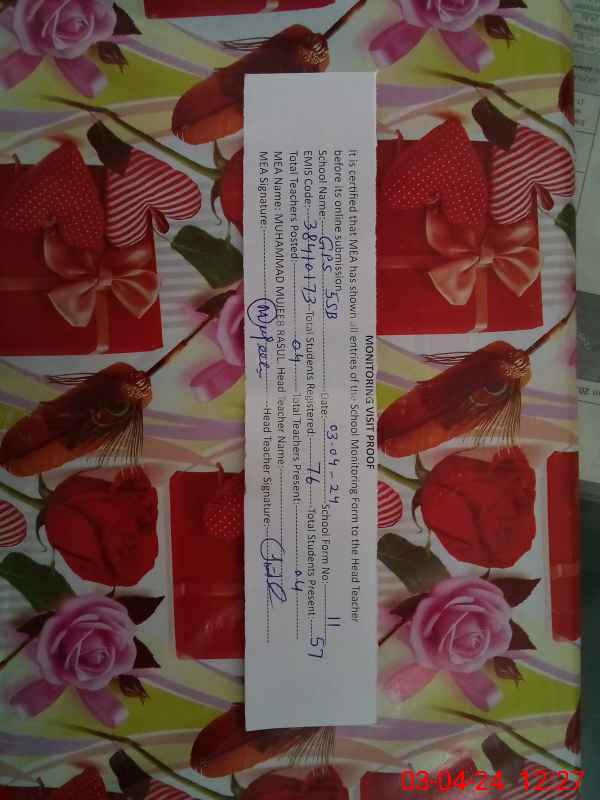 MONITORING VISIT PROOF
It is certified that MEA has shown all entries of the School Monitoring Form to the Head Teacher
before its online submission.
School Name:----GPS 55B--------Date:--03-04-24---School Form No:------11
EMIS Code:---38410173--Total Students Registered:----76----Total Students Present:----57
Total Teachers Posted:--------04-------Total Teachers Present:---------04
MEA Name: MUHAMMAD MUJEEB RASUL Head Teacher Name:-----------
MEA Signature:-----------Mujeeb-------Head Teacher Signature:-----------
03-04-24 12:27